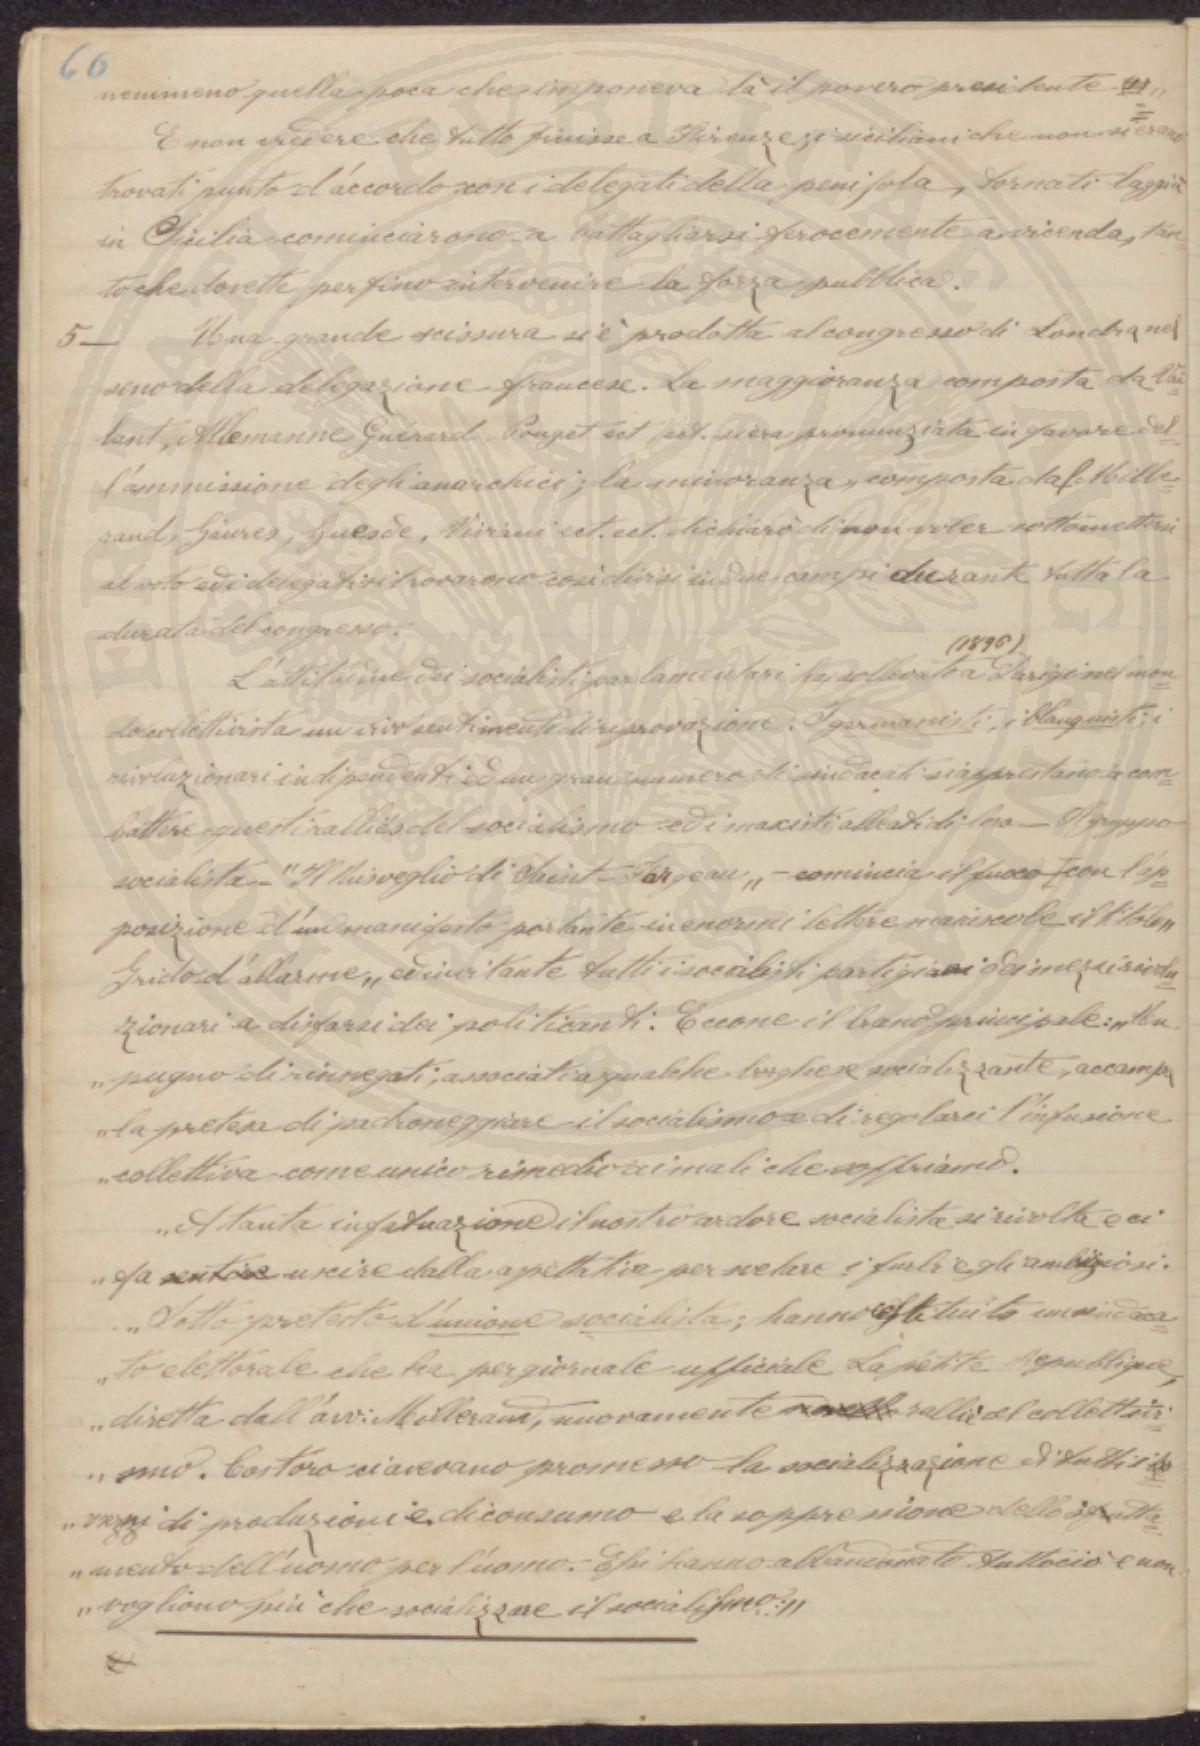 60
nemmeno quella poca che imponeva là il povero presidente
E non credere che tutto finisse a Firenze; i siciliani che non si erano
trovati punto d'accordo con i delegati della penisola, tornati laggiù
in Sicilia cominciarono a battagliarsi ferocemente a vicenda, tan=
to che dovette perfino intervenire la forza pubblica.
5— Una grande scissura si è prodotta al congresso di Londra nel
seno della delegazione francese. La maggioranza composta da Vai=
lant, Allemanne Guérard Pouget ect ect. si era pronunziata in favore del=
l'ammissione degli anarchici; la minoranza, composta da Mille=
rand, Gaures, Guesde, Viviani ect. ect. dichiarò di non voler sottomettersi
al voto ed i delegati si trovarono così divisi in due campi durante tutta la
durata del congresso.
(1896)
L'attitudine dei socialisti parlamentari ha sollevato a Parigi nel mon=
do collettivista un vivo sentimento di riprovazione. I germanisti, i blanquisti; i
rivoluzionari indipendenti ed un gran numero di sindacati si apprestano a com=
battere questi ralliés del socialismo ed i maxisti alleati di loro — Il gruppo
socialista — "Il Risveglio di Saint-Fargeau" — comincia il fuoco con l'ap=
posizione d'un manifesto portante in enormi lettere maiuscole il titolo "
Grido d'allarme" ed invitante tutti i socialisti partigiani dei mezzi rivolu=
zionari a disfarsi dei politicanti. Eccone il brano principale: "Un
" pugno di rinnegati, associati a qualche borghese socializzante, accampa
" la pretesa di padroneggiare il socialismo e di regolarci l'infusione
" collettiva come unico rimedio ai mali che soffriamo.
" A tanta infatuazione il nostro ardore socialista si rivolta e ci
" fa uscire dalla aspettativa per svelare i furbi e gli ambiziosi.
" Sotto pretesto d'unione socialista; hanno costituito un sindaca=
" to elettorale che ha per giornale ufficiale La petite Republique,
" diretta dall'avv: Millerand, nuovamente rallié al collettivi=
" smo. Costoro ci avevano promesso la socializzazione di tutti i
" mezzi di produzioni e di consumo e la soppressione dello sfrutta=
" mento dell'uomo per l'uomo. Essi hanno abbandonato tuttociò e non
" vogliono più che socializzare il socialismo:"